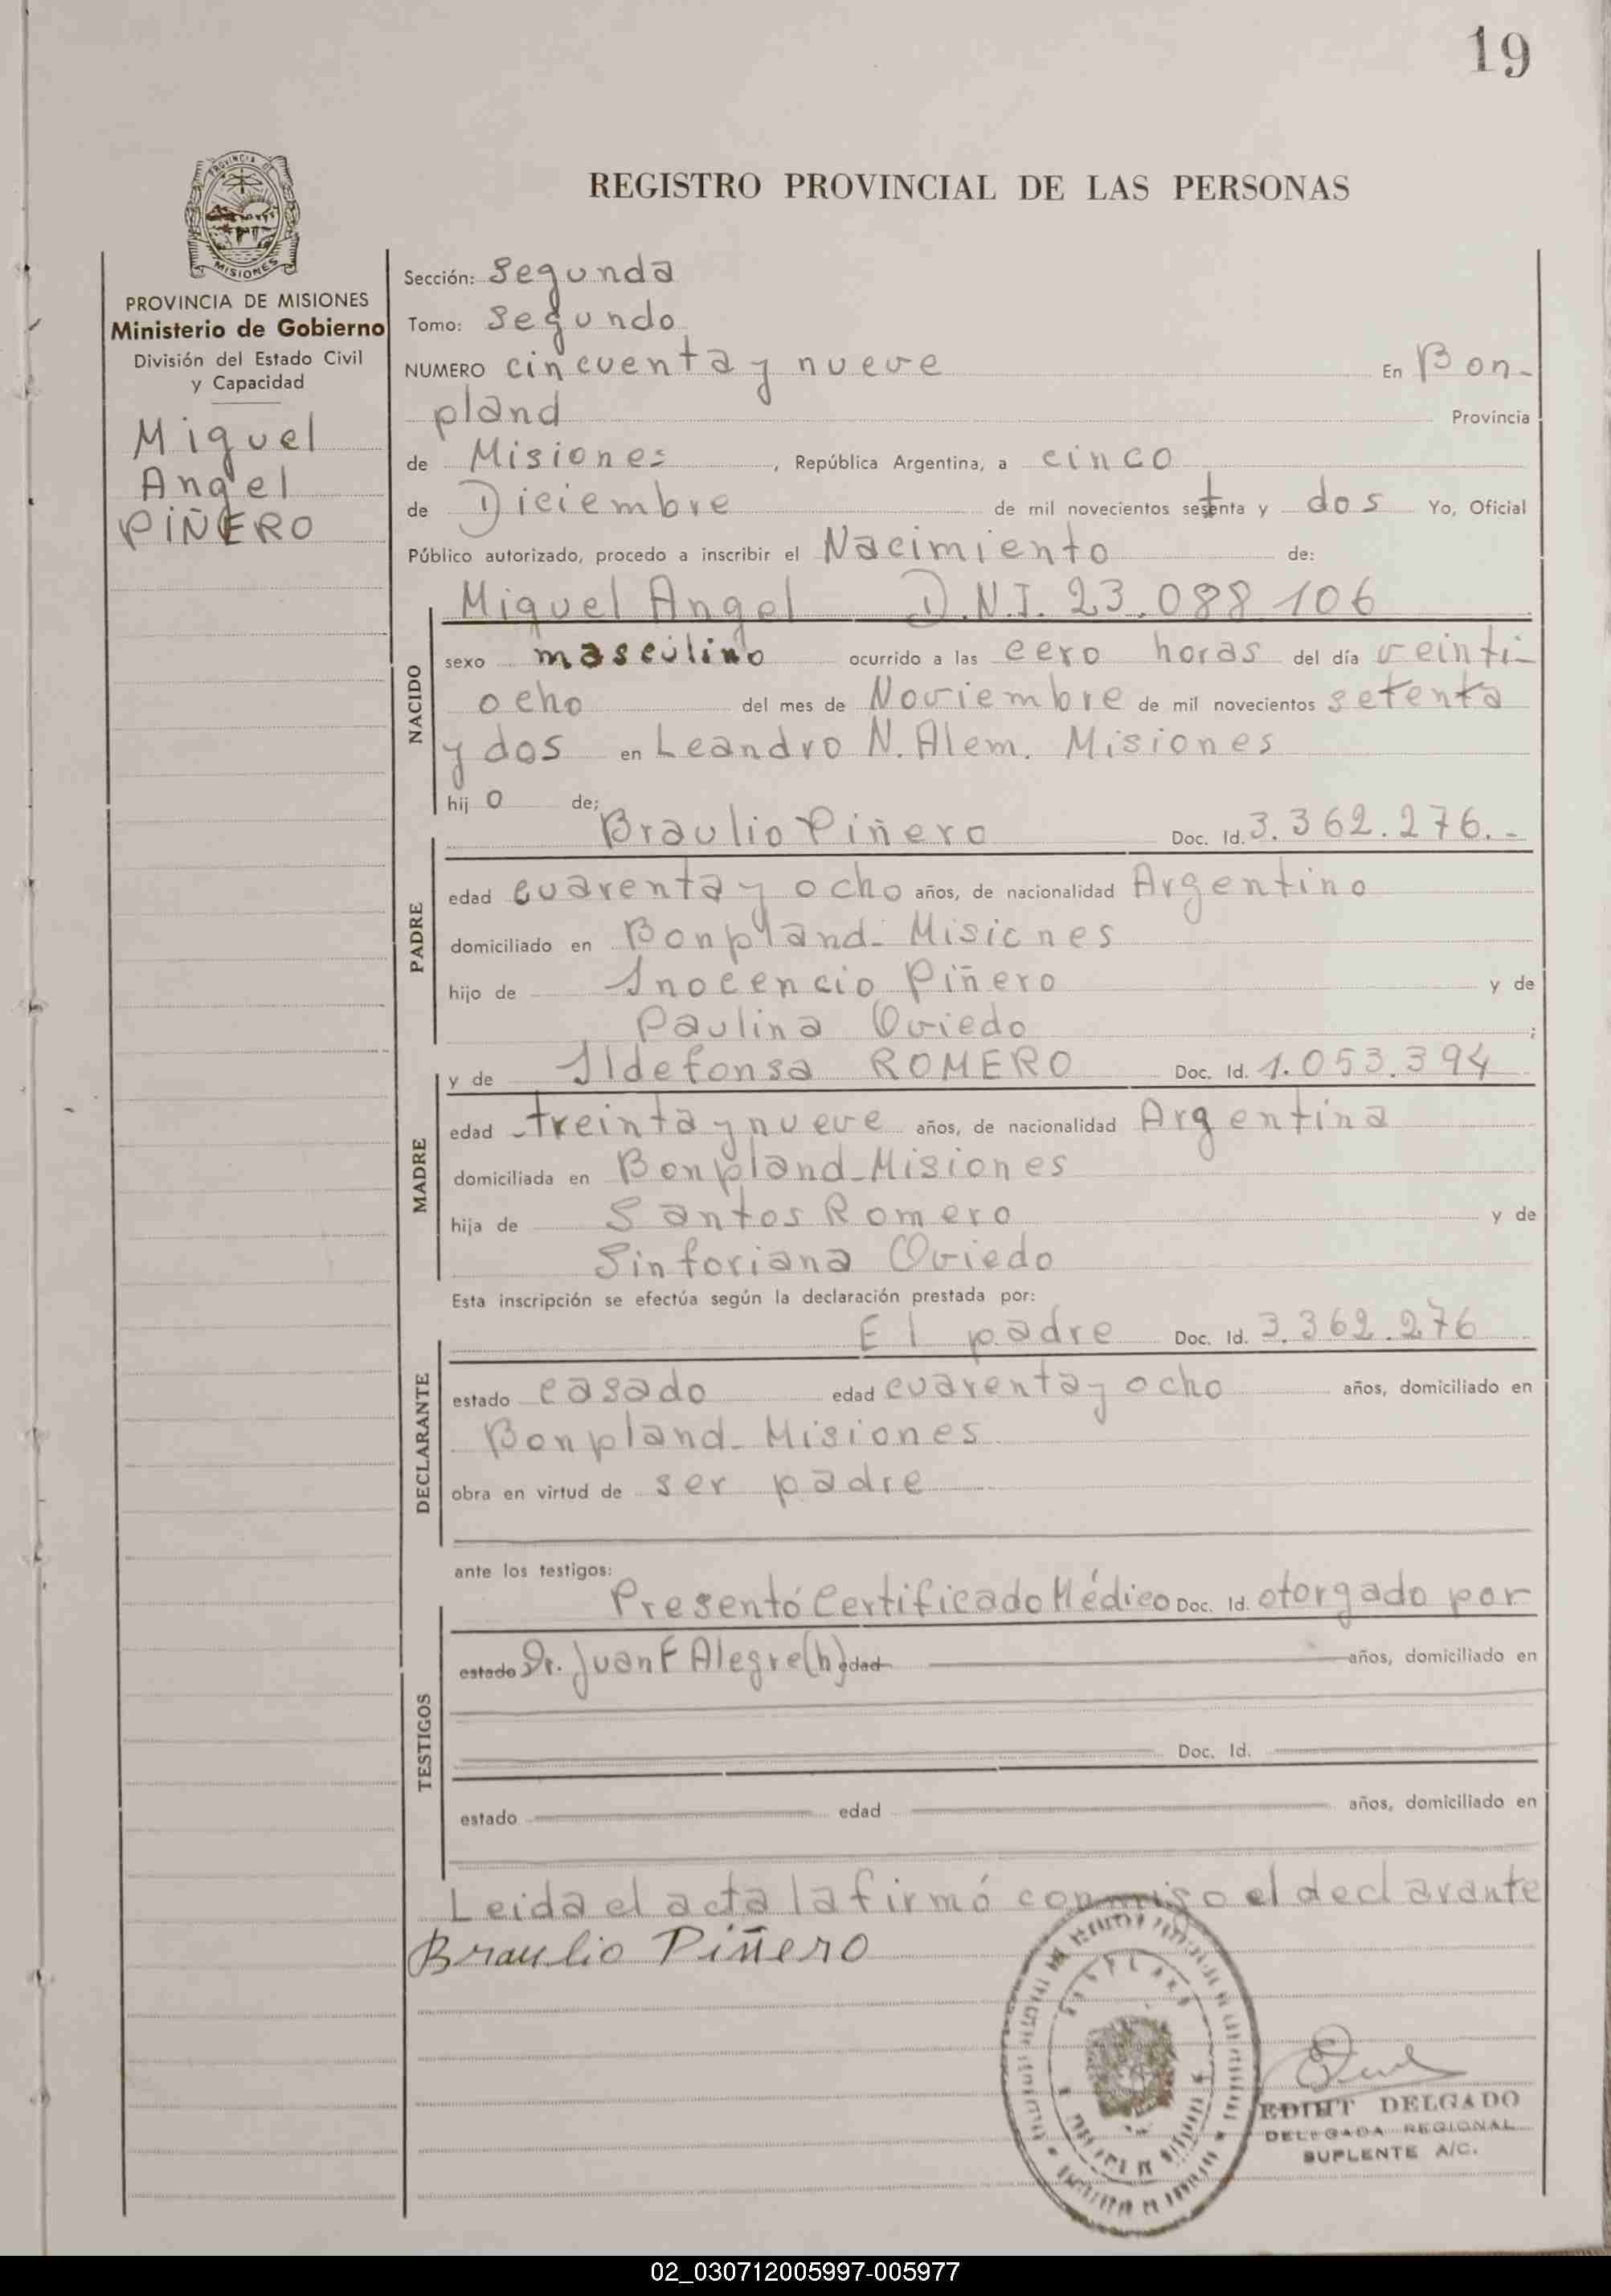 19
PROVINCIA DE
MISIONES
REGISTRO PROVINCIAL DE LAS PERSONAS
PROVINCIA DE MISIONES
Ministerio de Gobierno
División del Estado Civil
y Capacidad
Miguel
Angel
PIÑERO
Sección: Segunda
Tomo: Segundo
NUMERO cincuenta y nueve En Bon-
pland Provincia
de Misiones, República Argentina, a cinco
de Diciembre de mil novecientos setenta y dos Yo, Oficial
Público autorizado, procedo a inscribir el Nacimiento de:
NACIDO
Miguel Angel D.N.I. 23.088.106
sexo masculino ocurrido a las cero horas del día veinti-
ocho del mes de Noviembre de mil novecientos setenta
y dos en Leandro N. Alem. Misiones
hijo de:
PADRE
Braulio Piñero Doc. Id. 3.362.276.-
edad cuarenta y ocho años, de nacionalidad Argentino
domiciliado en Bonpland- Misiones
hijo de Inocencio Piñero y de
Paulina Oviedo ;
MADRE
y de Ildefonsa ROMERO Doc. Id. 1.053.394
edad treinta y nueve años, de nacionalidad Argentina
domiciliada en Bonpland-Misiones
hija de Santos Romero y de
Sinforiana Oviedo
Esta inscripción se efectúa según la declaración prestada por:
DECLARANTE
El padre Doc. Id. 3.362.276
estado casado edad cuarenta y ocho años, domiciliado en
Bonpland- Misiones
obra en virtud de ser padre
ante los testigos:
TESTIGOS
Presentó Certificado Médico Doc. Id. otorgado por
estado Dr. Juan F Alegre (h) edad años, domiciliado en
Doc. Id.
estado edad años, domiciliado en
Leida el acta la firmó conmigo el declarante
Braulio Piñero
EDIHT DELGADO
DELEGADA REGIONAL
SUPLENTE A/C.
02_030712005997-005977